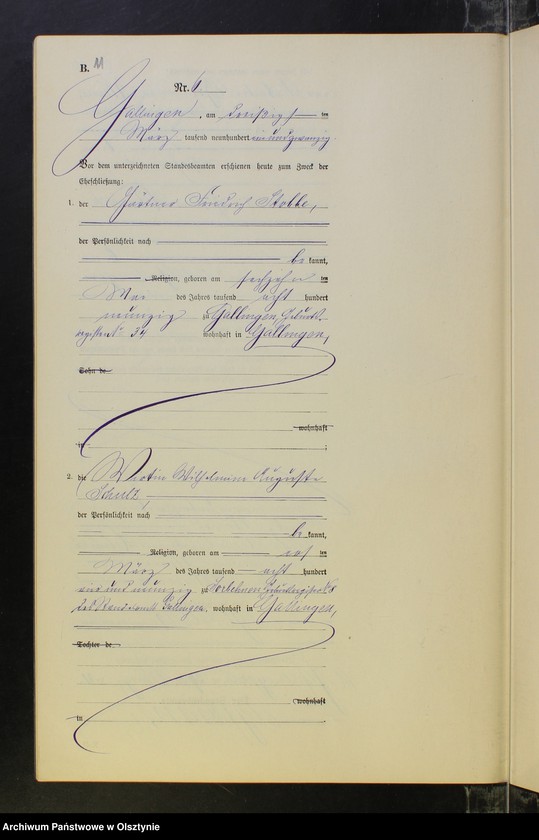 B. M
Nr. 6
Gallingen, am dreißig ten
März tausend neunhundert ein und zwanzig.
Vor dem unterzeichneten Standesbeamten erschienen heute zum Zweck der
Eheschließung:
1. der Gärtner Friedrich Stobbe,
der Persönlichkeit nach
be kannt,
Religion, geboren am sechzehn ten
Mai des Jahres tausend acht hundert
neunzig zu Gallingen, Geburts-
register Nr. 34 wohnhaft in Gallingen,
Sohn de
wohnhaft
in
2. die Wirtin Wilhelmine Auguste
Schulz,
der Persönlichkeit nach
be kannt,
Religion, geboren am ten
März des Jahres tausend acht hundert
ein und neunzig zu Geburtsregister Nr. 8
des Standesamts Gallingen, wohnhaft in Gallingen,
Tochter de
wohnhaft
in
Archiwum Państwowe w Olsztynie